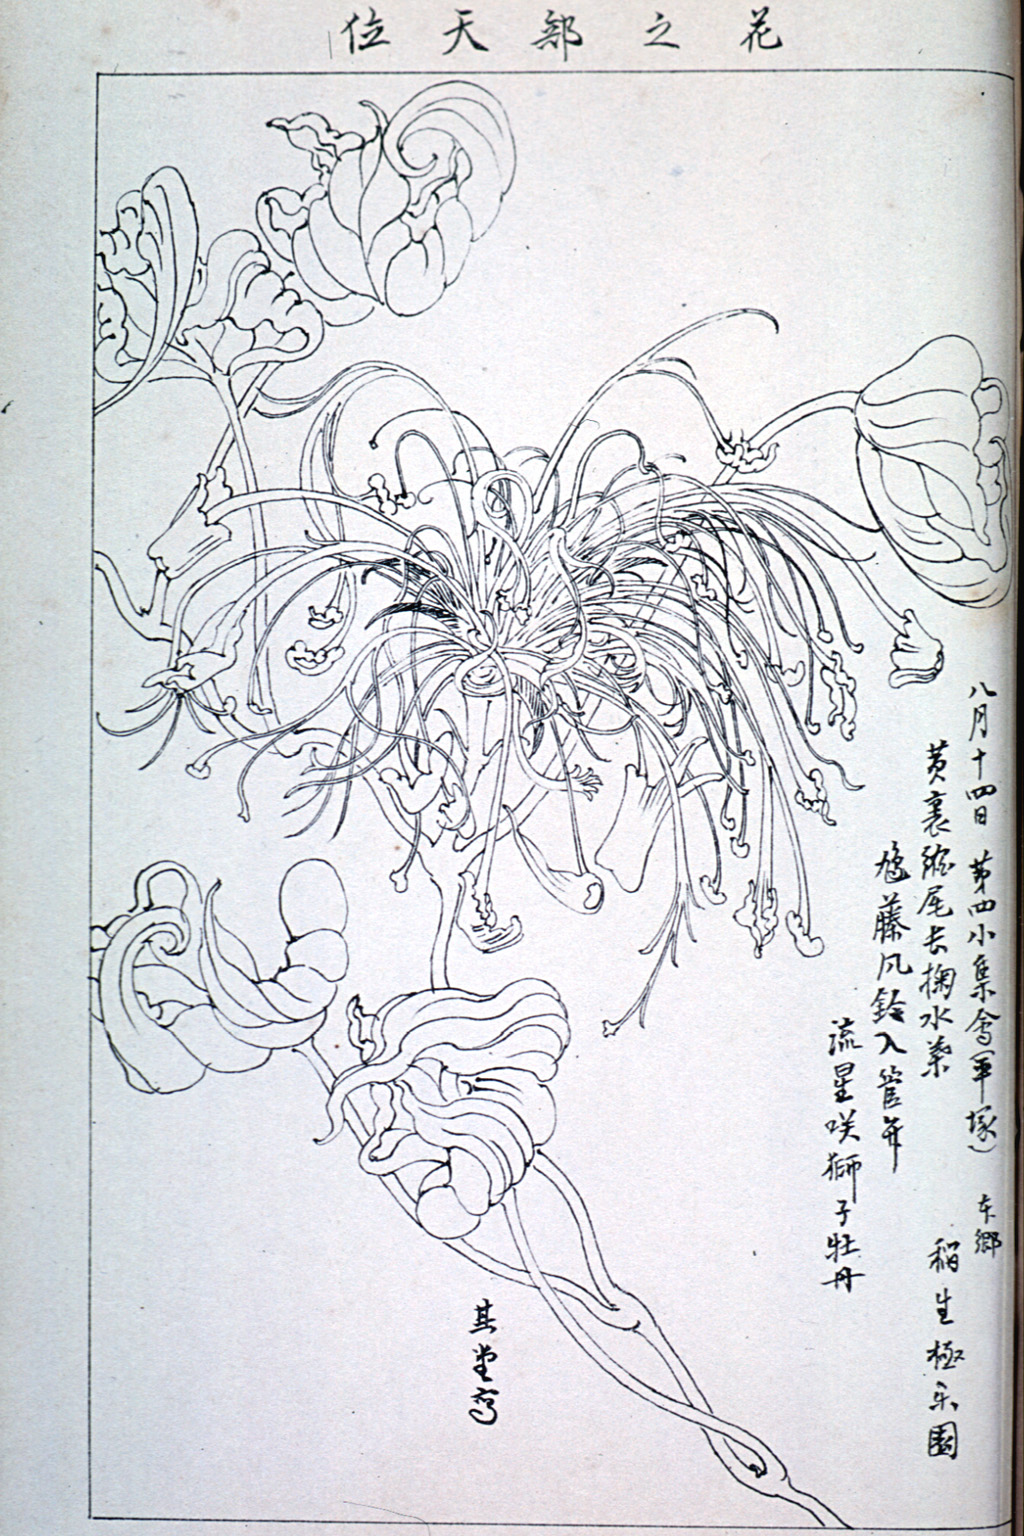 花之部天位
八月十四日 第四小集會 本郷
稲生極楽園
黄裏縮尾長掬水葉
鳩藤风鈴入管弁
流星咲獅子牡丹
其堂写